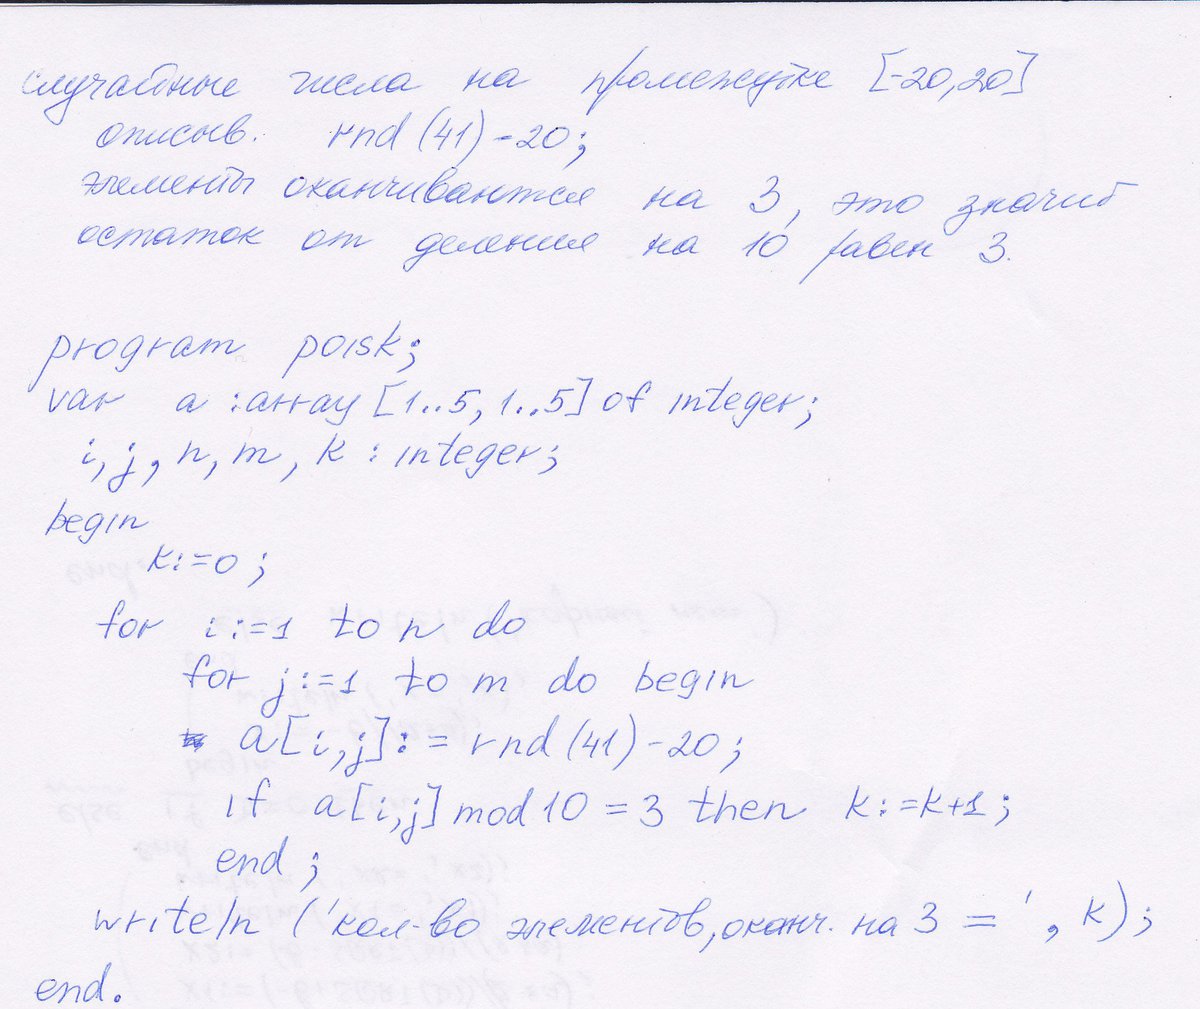 случайные числа на промежутке [-20,20]
описыв. rnd (41) - 20;
элементы оканчиваются на 3, это значит
остаток от деления на 10 равен 3.
program poisk;
var a : array [1..5, 1..5] of integer;
i, j, n, m, k : integer;
begin
k:=0;
for i:=1 to n do
for j:=1 to m do begin
a[i,j]:= rnd (41) - 20;
if a[i,j] mod 10 = 3 then k:=k+1;
end;
writeln ('кол-во элементов, оканч. на 3 = ', k);
end.